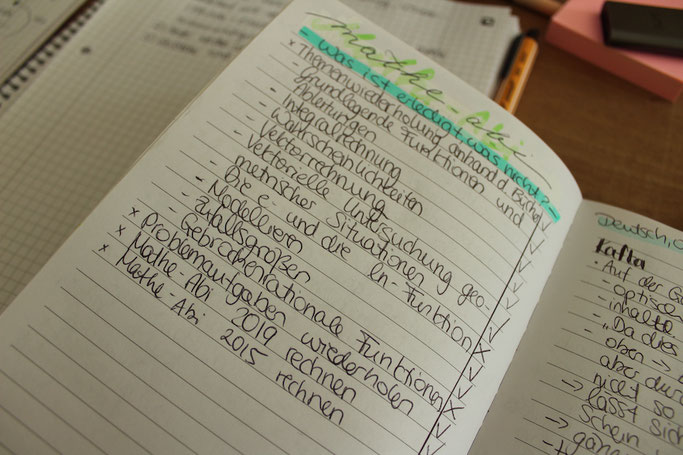 mathe-abi
- was ist erledigt, was nicht? -
x Themenwiederholung anhand d. Buchs
- grundlegende Funktionen und
Ableitungen
- Integralrechnung
- Wahrscheinlichkeiten
- Vektorrechnung
- Vektorielle Untersuchung geo-
metrischer Situationen
- Die e- und die ln-Funktion
- Modellieren
- Zufallsgrößen
- Gebrochenrationale Funktionen
x Problemaufgaben wiederholen
x Mathe-Abi 2019 rechnen
x Mathe-Abi 2015 rechnen
Deutsch,
Kafka
Auf der
- optisch
- inhaltl
- "Da dies
oben ->
aber
nicht so
-> lässt sich
Schein